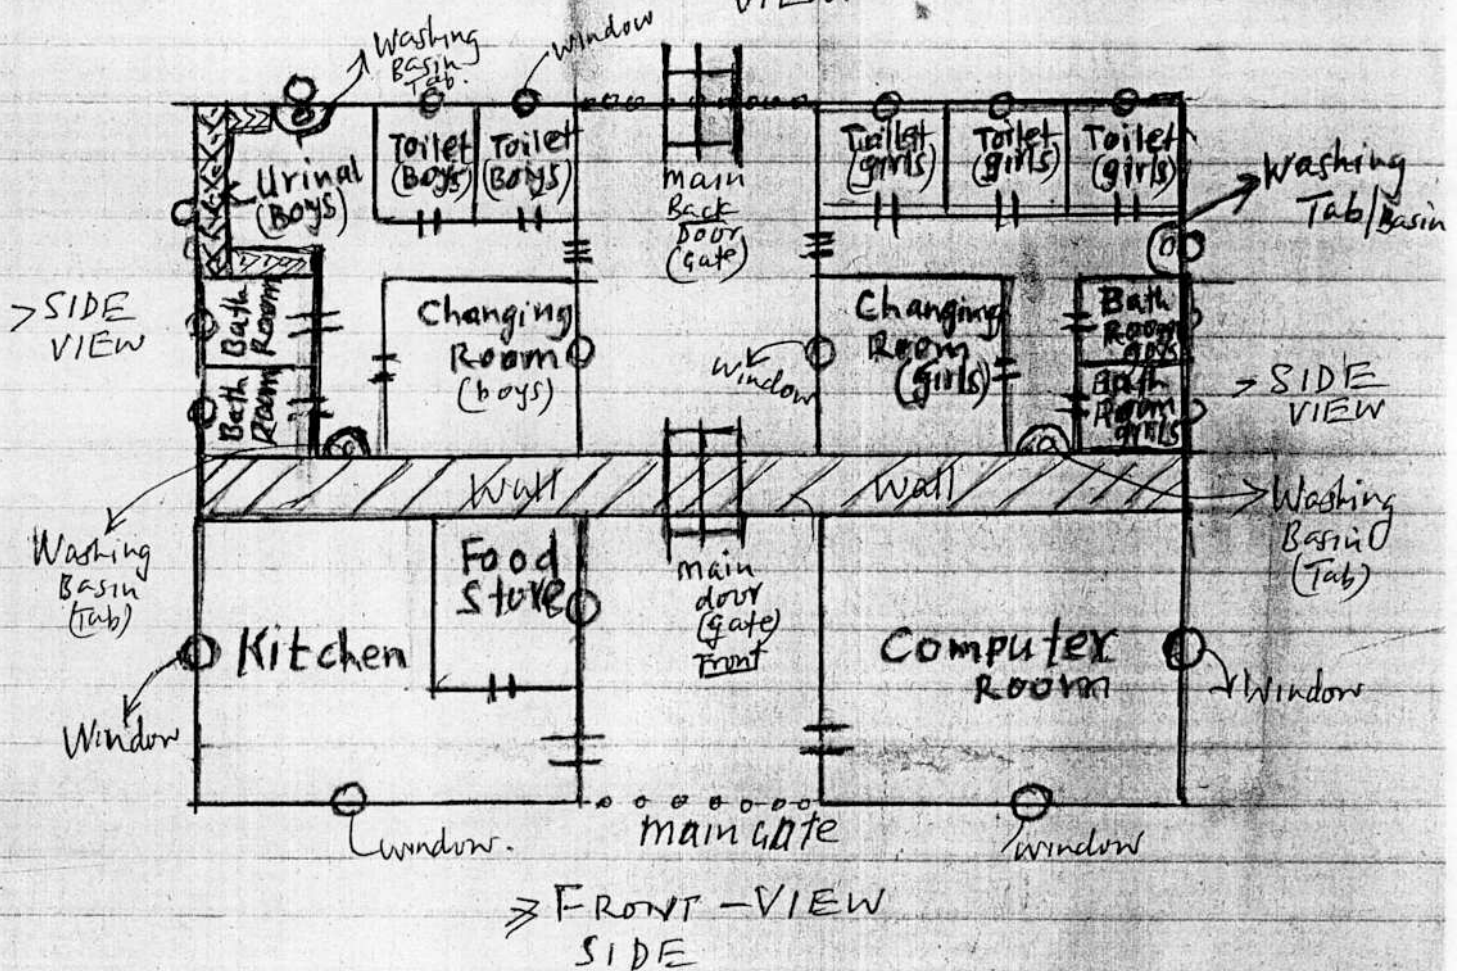 VIEW
Washing
Basin
Tab.
window
Urinal
(Boys)
Toilet
(Boys)
Toilet
(Boys)
main
Back
Door
(Gate)
Toilet
(girls)
Toilet
(girls)
Toilet
(girls)
Washing
Tab/Basin
> SIDE
VIEW
Bath
Room
Bath
Room
Changing
Room
(boys)
Window
Changing
Room
(girls)
Bath
Room
Bath
Room
girls
> SIDE
VIEW
Wall
Wall
Washing
Basin
(Tab)
Washing
Basin
(Tab)
Food
Store
main
door
(gate)
Front
Kitchen
Computer
Room
Window
Window
window.
main Gate
window
>> FRONT - VIEW
SIDE